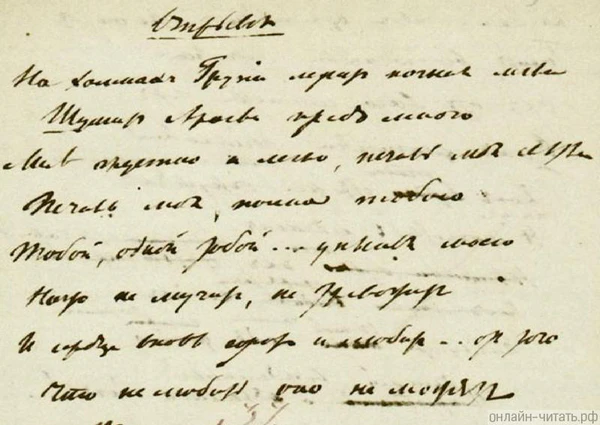 Отрывок
На холмах Грузии лежит ночная мгла
Шумит Арагва предо мною
Мне грустно и легко, печаль моя светла
Печаль моя, полна тобою
Тобой, одной тобой... унынья моего
Ничто не мучит, не тревожит
И сердце вновь горит и любит... от того
Что не любить оно не может
онлайн-читать.рф